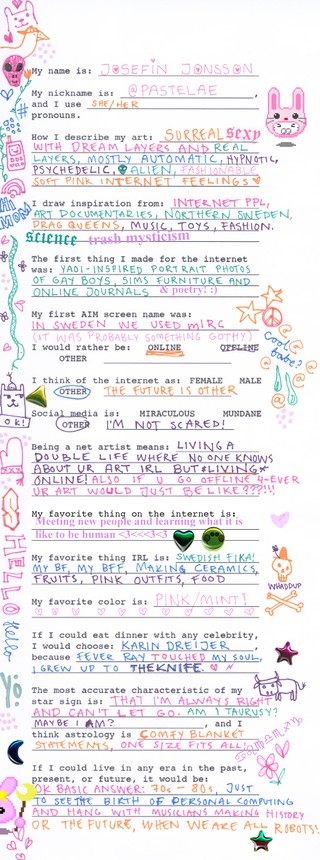 My name is: JOSEFIN JONSSON
My nickname is: @PASTELAE,
and I use SHE/HER
pronouns.
How I describe my art: SURREAL sexy
WITH DREAM LAYERS AND REAL
LAYERS, MOSTLY AUTOMATIC, HYPNOTIC,
PSYCHEDELIC, ALIEN, FASHIONABLE
SOFT PINK INTERNET FEELINGS
I draw inspiration from: INTERNET PPL,
ART DOCUMENTARIES, NORTHERN SWEDEN,
DRAG QUEENS, MUSIC, TOYS, FASHION.
science trash mysticism
The first thing I made for the internet
was: YAOI-INSPIRED PORTRAIT PHOTOS
OF GAY BOYS, SIMS FURNITURE AND
ONLINE JOURNALS & poetry! :)
My first AIM screen name was:
IN SWEDEN WE USED mIRC
(IT WAS PROBABLY SOMETHING GOTHY)
I would rather be: ONLINE OFFLINE
OTHER
Cool babe?
I think of the internet as: FEMALE MALE
OTHER THE FUTURE IS OTHER
Social media is: MIRACULOUS MUNDANE
OTHER I'M NOT SCARED!
Ok!
Being a net artist means: LIVING A
DOUBLE LIFE WHERE NO ONE KNOWS
ABOUT UR ART IRL BUT *LIVING*
ONLINE! ALSO IF U GO OFFLINE 4-EVER
UR ART WOULD JUST BE LIKE???!!!
My favorite thing on the internet is:
Meeting new people and learning what it is
like to be human <3<<<3<3
HELLO
Hello
My favorite thing IRL is: SWEDISH FIKA!
MY BF, MY BFF, MAKING CERAMICS,
FRUITS, PINK OUTFITS, FOOD
WHADDUP
My favorite color is: PINK/MINT!
If I could eat dinner with any celebrity,
I would choose: KARIN DREIJER,
because FEVER RAY TOUCHED MY SOUL,
I GREW UP TO THE KNIFE.
Yo!
The most accurate characteristic of my
star sign is: THAT I'M ALWAYS RIGHT
AND CAN'T LET GO. AM I TAURUSY?
MAYBE I AM?, and I
think astrology is COMFY BLANKET
STATEMENTS, ONE SIZE FITS ALL!
If I could live in any era in the past,
present, or future, it would be:
OK BASIC ANSWER: 70s - 80s, JUST
TO SEE THE BIRTH OF PERSONAL COMPUTING
AND HANG WITH MUSICIANS MAKING HISTORY
OR THE FUTURE, WHEN WE ARE ALL ROBOTS!